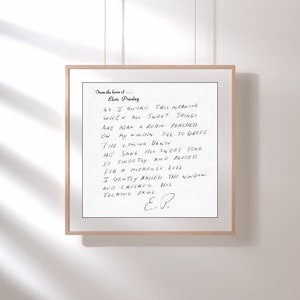 From the home of . . .
Elvis Presley
AS I AWOKE THIS MORNING
WHEN ALL SWEET THINGS
ARE BORN A ROBIN PERCHED
ON MY WINDOW SILL TO GREET
THE COMING DAWN
HE SANG HIS SWEET SONG
SO SWEETLY AND PAUSED
FOR A MOMENTS LULL
I GENTLY RAISED THE WINDOW
AND CRUSHED HIS
FUCKING SKULL
E.P.